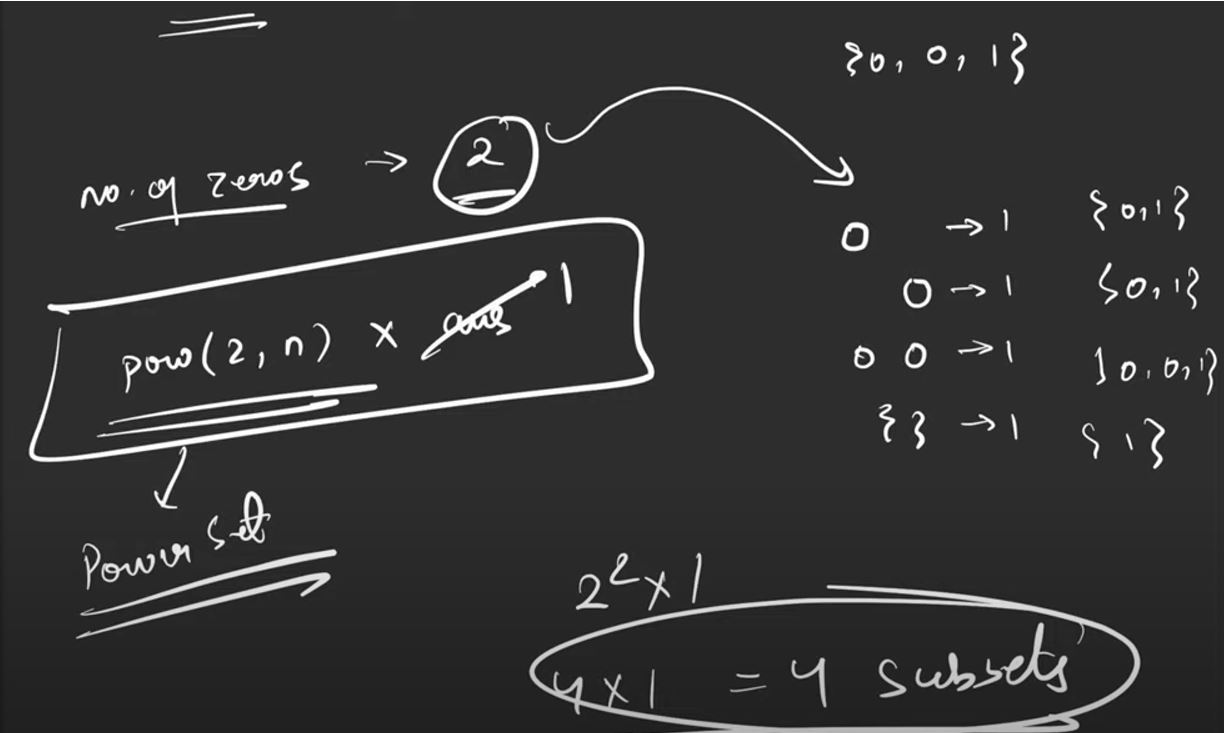 {0, 0, 1}
no. of zeros → 2
pow(2, n) x ans 1
Power Set
0 → 1 {0,1}
0 → 1 {0,1}
0 0 → 1 {0,0,1}
{} → 1 {1}
2² x 1
4 x 1 = 4 subsets